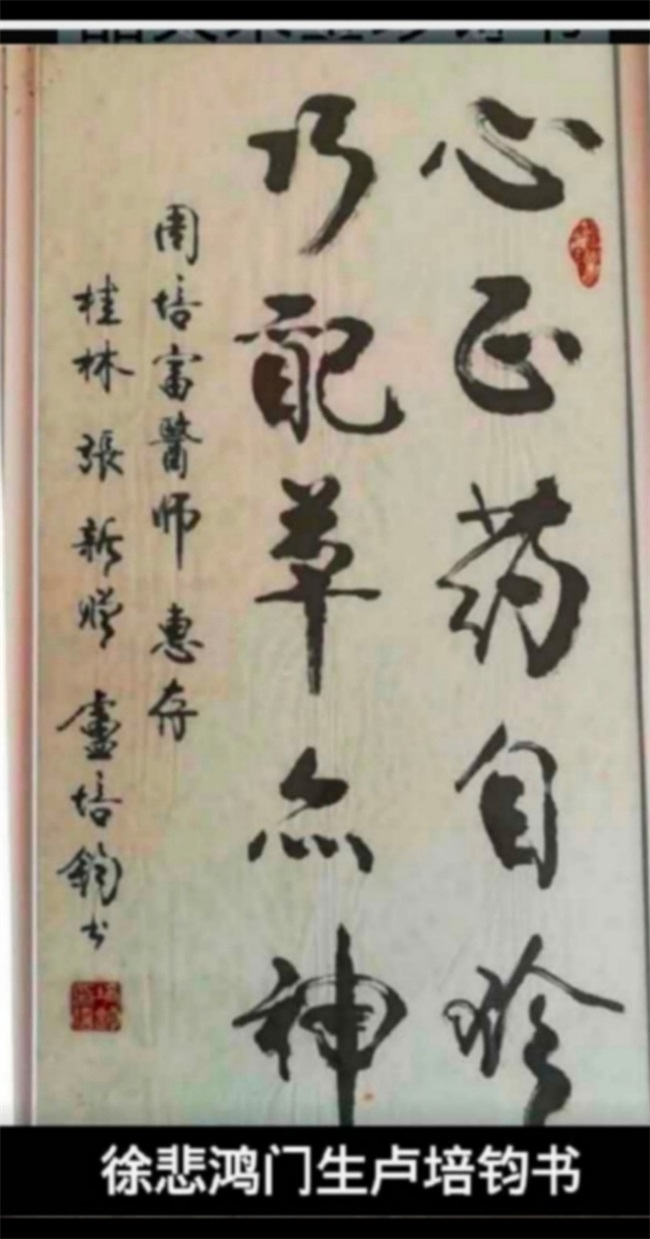 心正药自
巧配草亦神
周培富醫师惠存
桂林張新贈 盧培鈞书
徐悲鸿门生卢培钧书